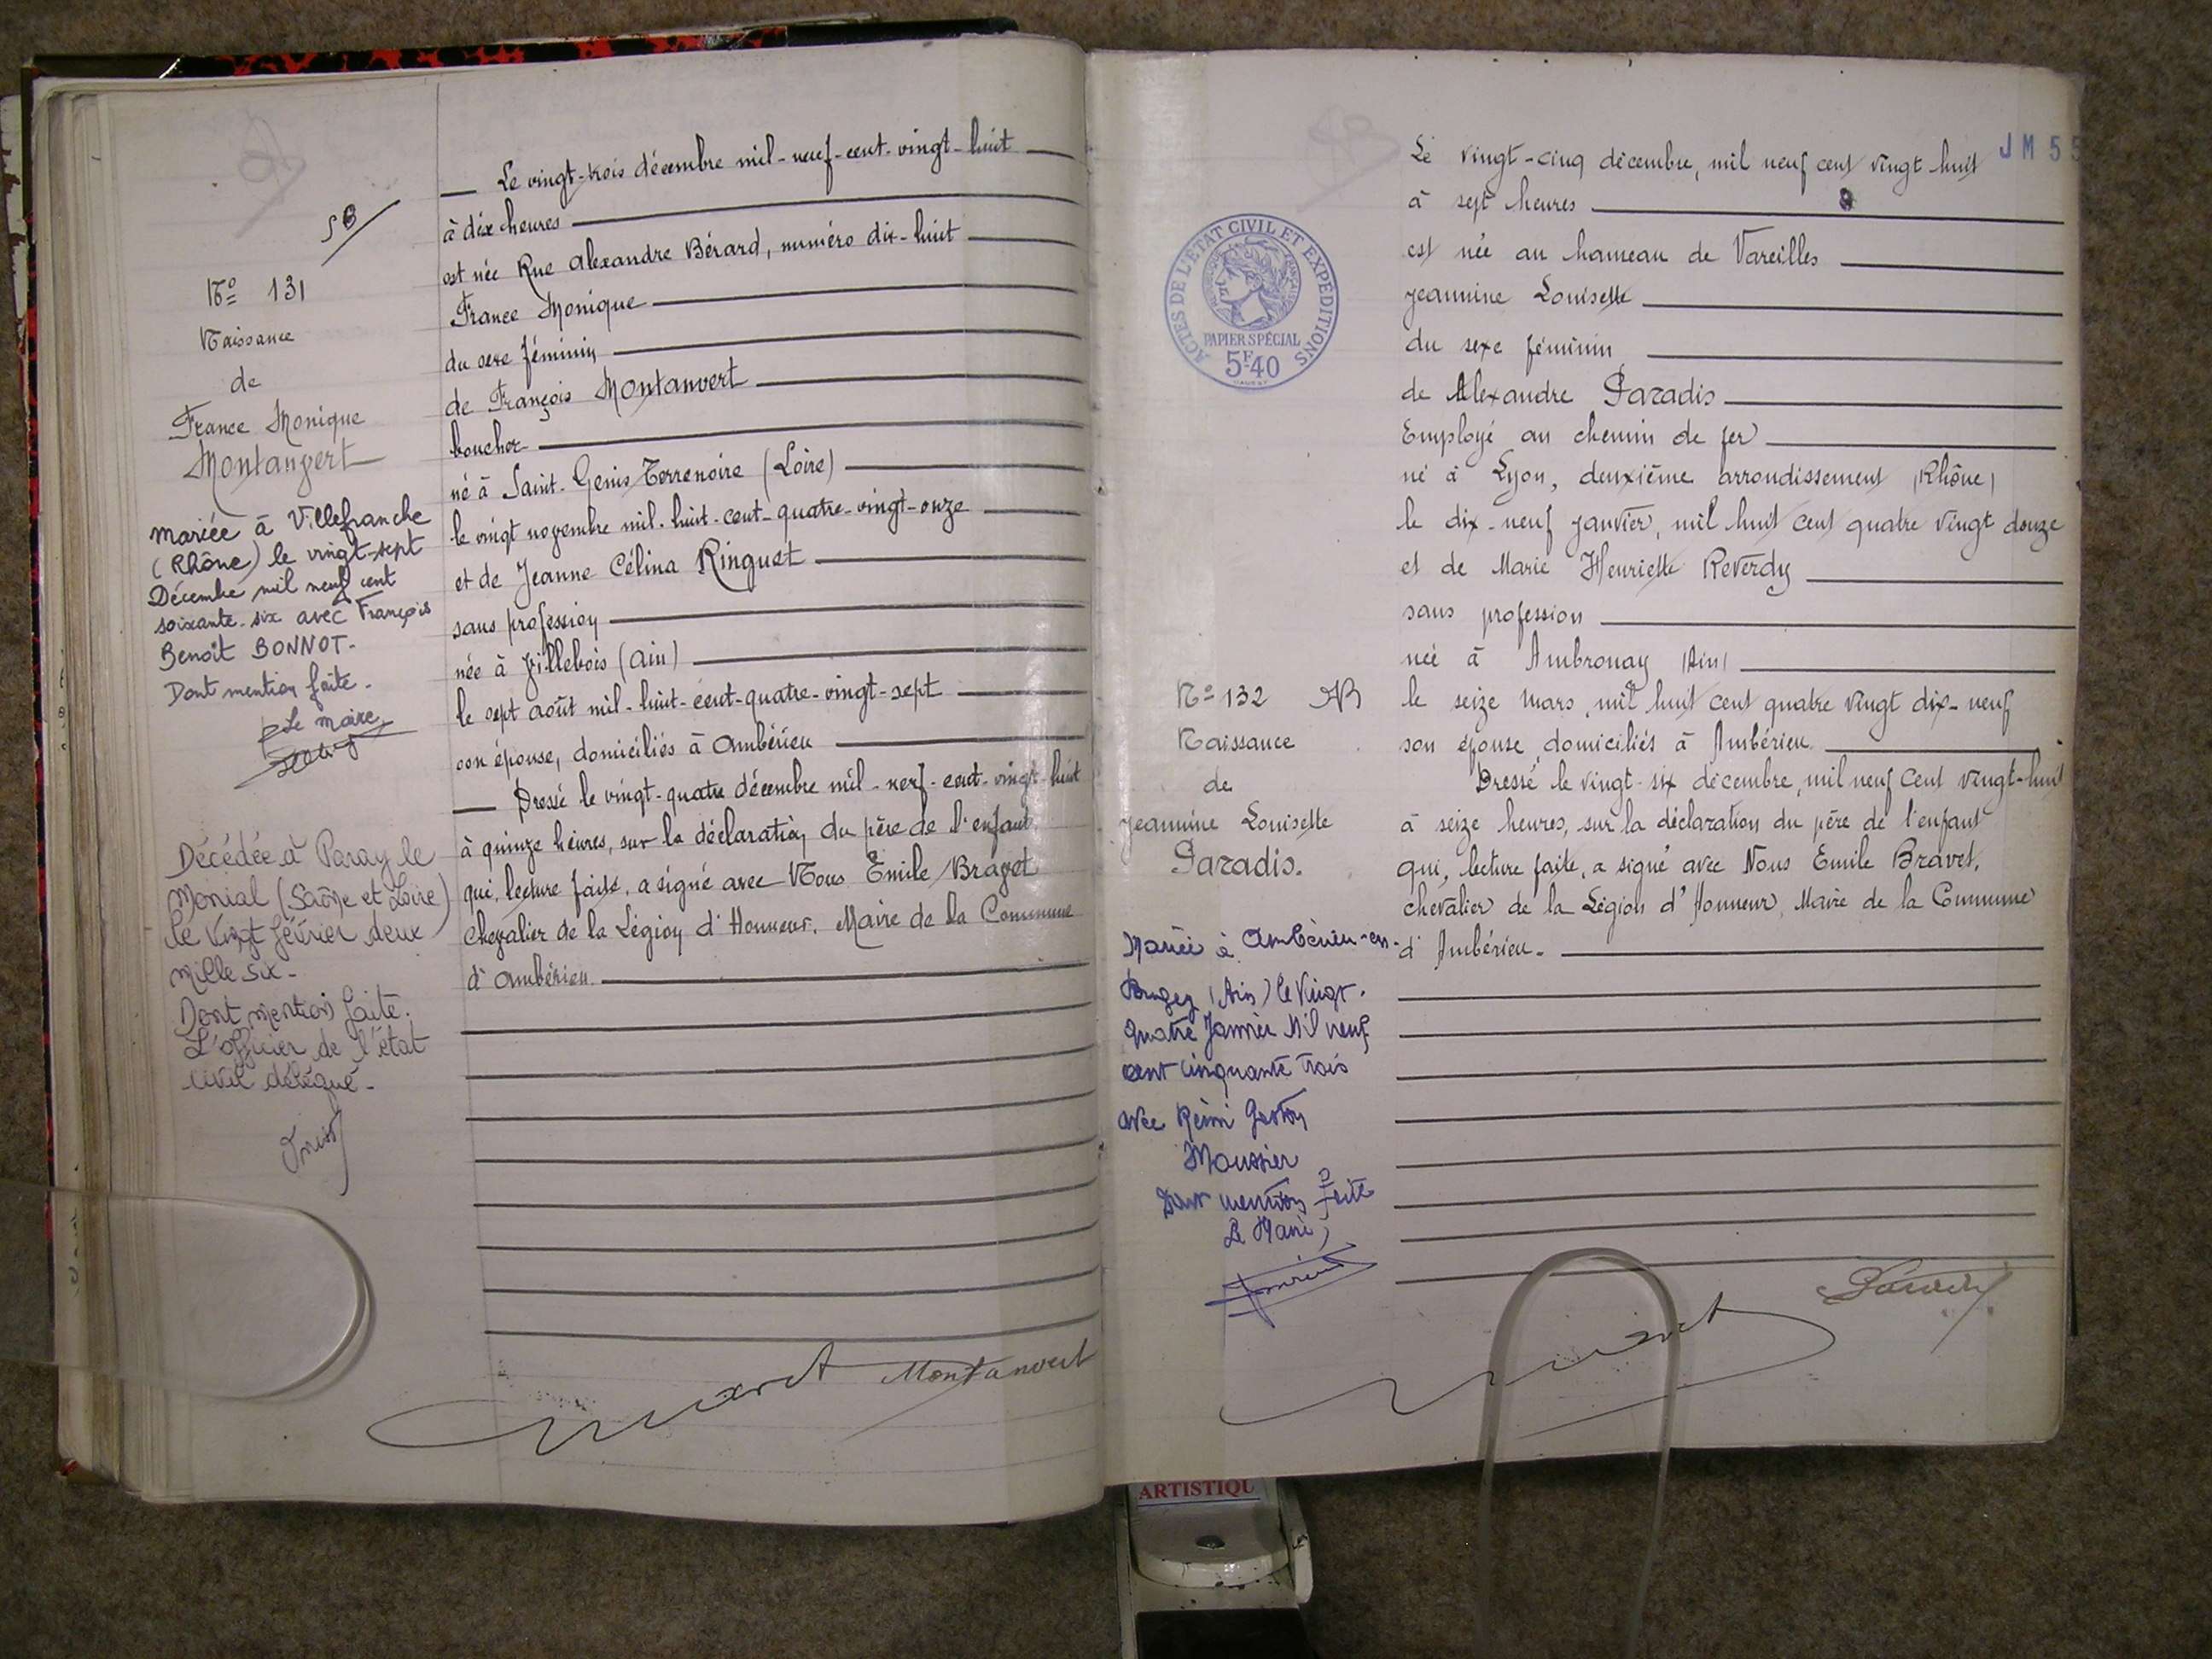 58
Nº 131
Naissance
de
France Monique
Montanvert
Mariée à Villefranche
(Rhône) le vingt-sept
Décembre mil neuf cent
soixante-six avec François
Benoît BONNOT.
Dont mention faite.
Le maire,
Décédée à Paray le
Monial (Saône et Loire)
le vingt février deux
mille six.
Dont mention faite.
L'officier de l'état
civil délégué.
Le vingt-trois décembre mil-neuf-cent-vingt-huit
à dix heures
est née Rue Alexandre Bérard, numéro dix-huit
France Monique
du sexe féminin
de François Montanvert
boucher
né à Saint-Genis-Terrenoire (Loire)
le vingt novembre mil-huit-cent-quatre-vingt-onze
et de Jeanne Célina Ringuet
sans profession
née à Villebois (Ain)
le sept août mil-huit-cent-quatre-vingt-sept
son épouse, domiciliés à Ambérieu
Dressé le vingt-quatre décembre mil-neuf-cent-vingt-huit
à quinze heures, sur la déclaration du père de l'enfant
qui, lecture faite, a signé avec Nous Emile Bravet
Chevalier de la Légion d'Honneur, Maire de la Commune
d'Ambérieu.
Montanvert
JM 55
ACTES DE L'ÉTAT CIVIL ET EXPÉDITIONS
PAPIER SPÉCIAL
5F40
Nº 132
Naissance
de
Jeannine Louisette
Paradis.
Mariée à Ambérieu-en-
Bugey (Ain) le vingt-
quatre Janvier Mil neuf
cent cinquante trois
avec Rémi Gaston
Moussier
Dont mention faite
Le Maire,
Le vingt-cinq décembre, mil neuf cent vingt huit
à sept heures
est née au hameau de Vareilles
Jeannine Louisette
du sexe féminin
de Alexandre Paradis
Employé au chemin de fer
né à Lyon, deuxième arrondissement (Rhône)
le dix-neuf janvier, mil huit cent quatre vingt douze
et de Marie Henriette Reverdy
sans profession
née à Ambronay (Ain)
le seize mars, mil huit cent quatre vingt dix-neuf
son épouse, domiciliés à Ambérieu.
Dressé le vingt-six décembre, mil neuf cent vingt-huit
à seize heures, sur la déclaration du père de l'enfant
qui, lecture faite, a signé avec Nous Emile Bravet,
chevalier de la Légion d'Honneur, Maire de la Commune
d'Ambérieu.
ARTISTIQU